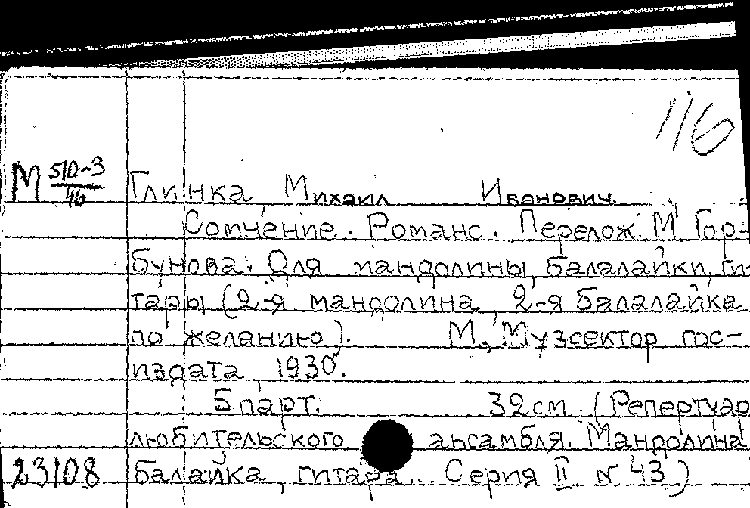 116
М 510-3/46 Глинка Михаил Иванович.
Сомнение. Романс. Перелож. М. Гор-
бунова. Для мандолины, балалайки, ги-
тары (2-я мандолина, 2-я балалайка
по желанию). М., Музсектор гос-
издата, 1930.
5 парт. 32 см. (Репертуар
любительского ансамбля. Мандолина
23108 балайка, гитара. Серия II № 43)